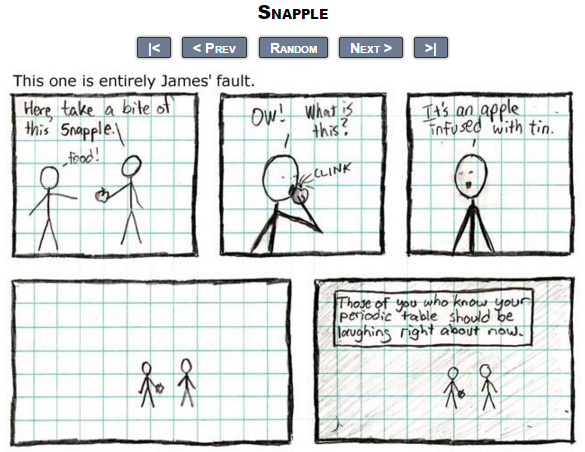 Snapple
|< < Prev Random Next > >|
This one is entirely James' fault.
Here, take a bite of
this Snapple.
Food!
OW! What is
this?
CLINK
It's an apple
infused with tin.
Those of you who know your
periodic table should be
laughing right about now.